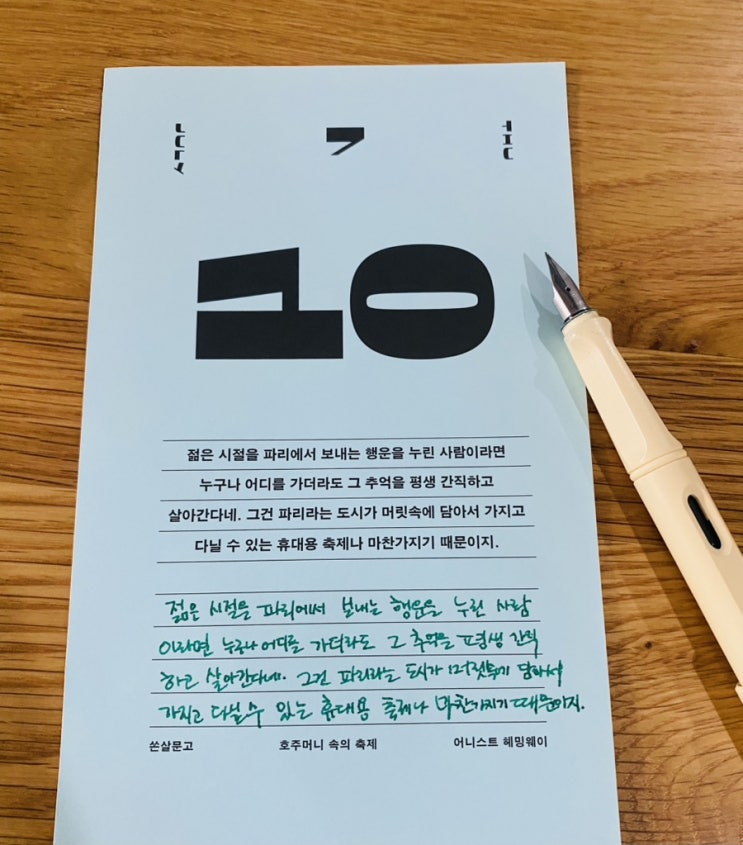 JULY 7 THU
10
젊은 시절을 파리에서 보내는 행운을 누린 사람이라면
누구나 어디를 가더라도 그 추억을 평생 간직하고
살아간다네. 그건 파리라는 도시가 머릿속에 담아서 가지고
다닐 수 있는 휴대용 축제나 마찬가지기 때문이지.
젊은 시절을 파리에서 보내는 행운을 누린 사람
이라면 누구나 어디를 가더라도 그 추억을 평생 간직
하고 살아간다네. 그건 파리라는 도시가 머릿속에 담아서
가지고 다닐 수 있는 휴대용 축제나 마찬가지기 때문이지.
쏜살문고 호주머니 속의 축제 어니스트 헤밍웨이